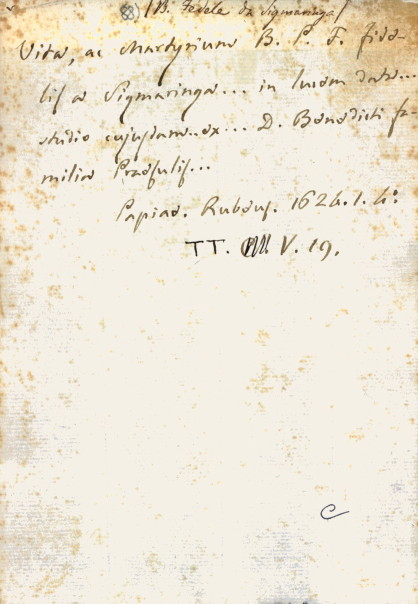 (B. Fedele da Sigmaringa)
Vita, ac Martyrium B. P. F. fide-
lis a Sigmaringa... in lucem data...
studio cujusdam ex... D. Benedicti fa-
milia Præsulis...
Papiae. Rubeus. 1624. 1. 4.°
TT. V. 19.
C